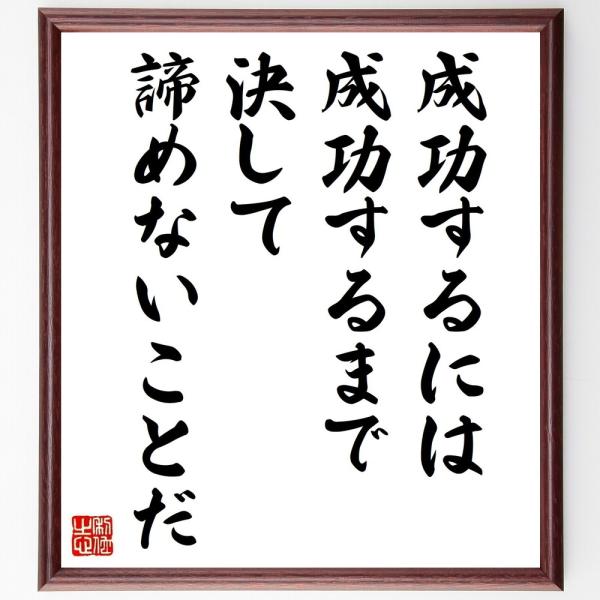 成功するには
成功するまで
決して
諦めないことだ